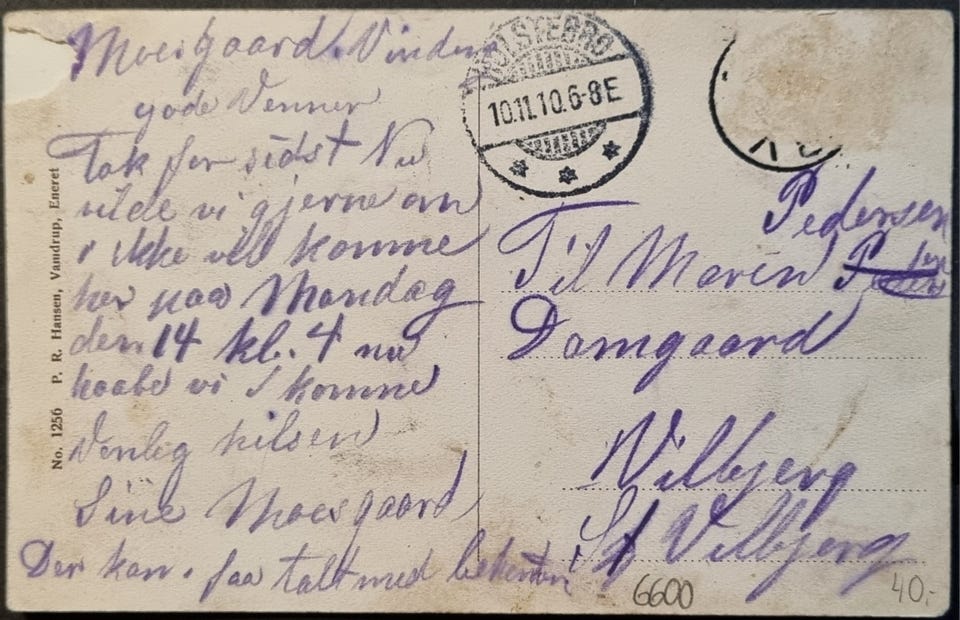 Moesgaard. Vinding
gode Venner
Tak for sidst Nu
vilde vi gjerne om
i ikke vil komme
her paa Mandag
den 14 kl. 4 nu
haabe vi I komme
Venlig hilsen
Sine Moesgaard
Der kan. faa talt med
No. 1256 P. R. Hansen, Vamdrup, Eneret
HOLSTEBRO
10.11.10.6-8E
Pedersen
Til Maren
Damgaard
Vilbjerg
St Vilbjerg
6600
40.-